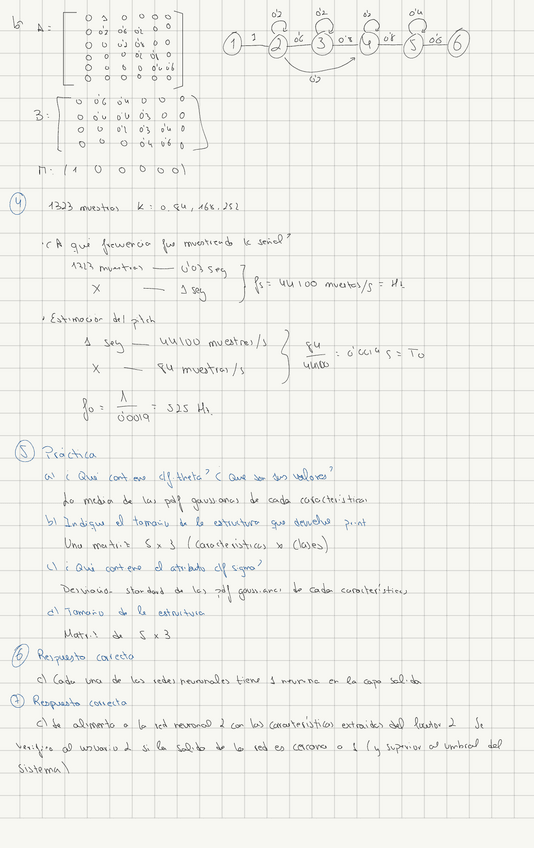 b A: [ 0 1 0 0 0 0
0 0'2 0'6 0'2 0 0
0 0 0'2 0'8 0 0
0 0 0 0'2 0'8 0
0 0 0 0 0'4 0'6
0 0 0 0 0 0 ]
0'2 0'2 0'2 0'4
1 1 2 0'6 3 0'8 4 0'8 5 0'6 6
0'2
B: [ 0 0'6 0'4 0 0 0
0 0'4 0'4 0'3 0 0
0 0 0'1 0'3 0'4 0
0 0 0 0'4 0'6 0 ]
Π: (1 0 0 0 0 0)
4 1323 muestras K = 0, 84, 168, 252
· ¿A qué frecuencia fue muestreada la señal?
1323 muestras — 0'03 seg
X — 1 seg
fs = 44100 muestras/s = Hz
· Estimacion del pitch
1 seg — 44100 muestras/s
X — 84 muestras/s
84/44100 = 0'0019 s = To
fo = 1/0'0019 = 525 Hz.
5 Práctica
a) ¿Qué contiene clf.theta? ¿Qué son sus valores?
La media de las pdf gaussianas de cada caracteristica
b) Indique el tamaño de la estructura que devuelve print
Una matriz 5 x 3 (características x clases)
c) ¿Qué contiene el atributo clf.sigma?
Desviación standard de las pdf gaussianas de cada característica
d) Tamaño de la estructura
Matriz de 5 x 3
6 Respuesta correcta
c) Cada una de las redes neuronales tiene 1 neurona en la capa salida
7 Respuesta correcta
c) Se alimenta a la red neuronal 2 con las características extraídas del locutor 2. Se
verifica al usuario 2 si la salida de la red es cercana a 1 (y superior al umbral del
sistema)